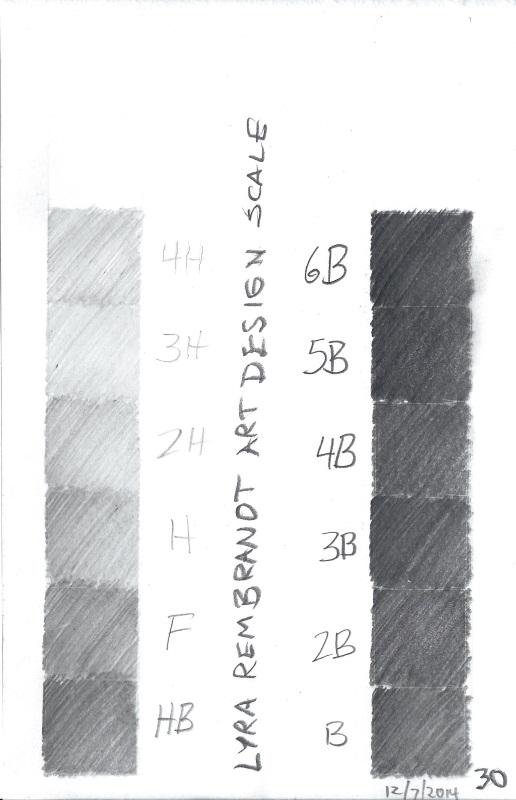 4H
3H
2H
H
F
HB
LYRA REMBRANDT ART DESIGN SCALE
6B
5B
4B
3B
2B
B
12/7/2014
30